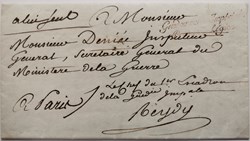 a lui seul A Monsieur
Monsieur Deniée Inspecteur
General, Secretaire General du
Ministere de la Guerre
A Paris
Le chef du 1er Escadron
de la